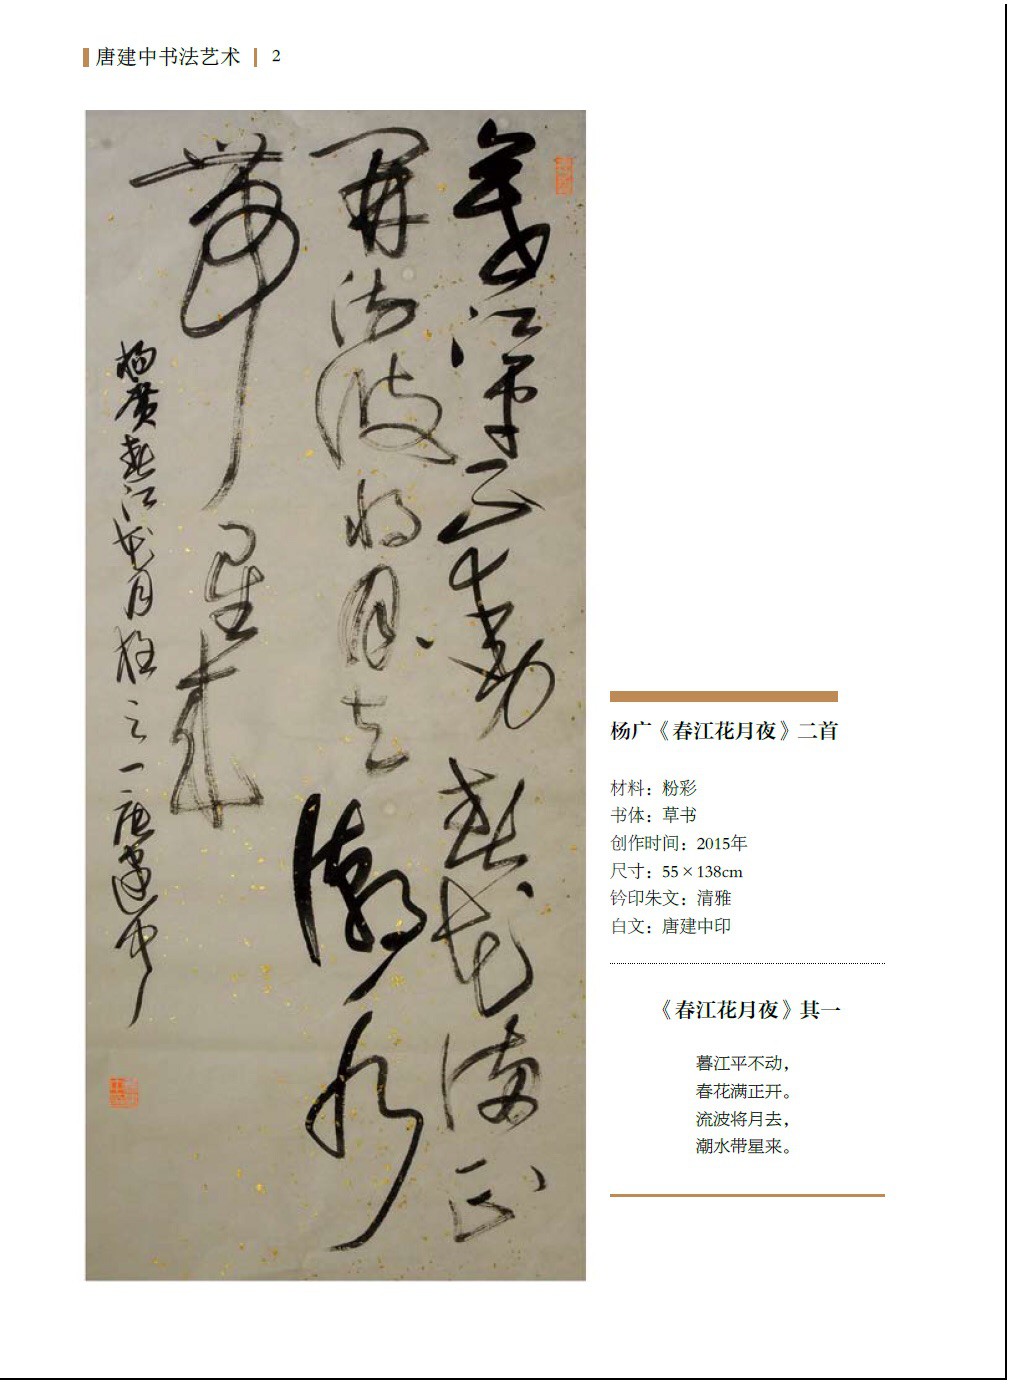 唐建中书法艺术 2
暮江平不動春花滿正
開流波将月去潮水
帶星來
楊廣春江花月夜之一唐建中
杨广《春江花月夜》二首
材料：粉彩
书体：草书
创作时间：2015年
尺寸：55×138cm
钤印朱文：清雅
白文：唐建中印
《春江花月夜》其一
暮江平不动，
春花满正开。
流波将月去，
潮水带星来。